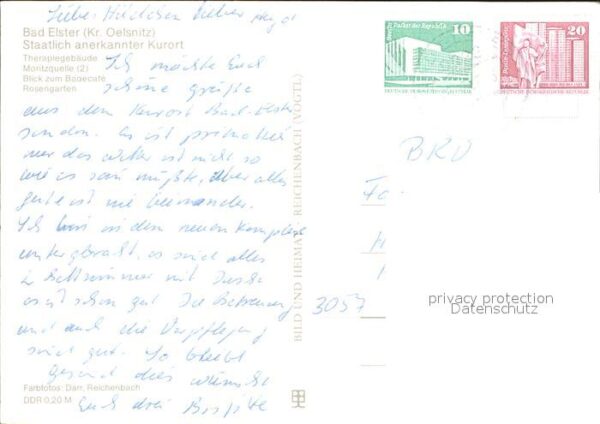 Liebe Mädchen lieber
Bad Elster (Kr. Oelsnitz)
Staatlich anerkannter Kurort
Therapiegebäude
Moritzquelle (2)
Blick zum Badecafé
Rosengarten
Ich möchte Euch
schöne Grüße
aus dem Kurort Bad-Elster
senden. Es ist prima hier
nur das ist nicht so
wie es sein müßte, aber alles
ist nie beieinander.
Ich bin in dem neuen Komplex
untergebracht, es sind alles
2 Bettzimmer mit Dusche
es ist schon gut Die Betreuung
und auch die Verpflegung
sind gut. So bleibt
gesund dies wünscht
Euch
Farbfotos: Darr, Reichenbach
DDR 0,20 M
BILD UND HEIMAT REICHENBACH (VOGTL)
Berlin, Palast der Republik
10
DEUTSCHE DEMOKRATISCHE REPUBLIK
20
DEUTSCHE DEMOKRATISCHE REPUBLIK
BRD
3057
privacy protection
Datenschutz